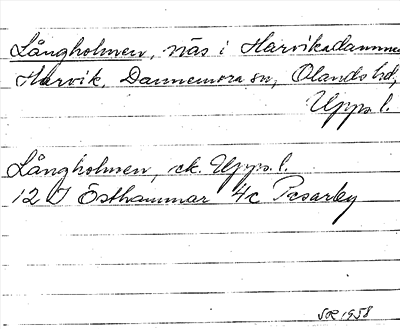 Långholmen, näs i Harviksdammen
Harvik, Dannemora sn, Olands hd,
Upps. l.
Långholmen, ek. Upps. l.
12 I Östhammar 4c Pesarby
SOE 1958